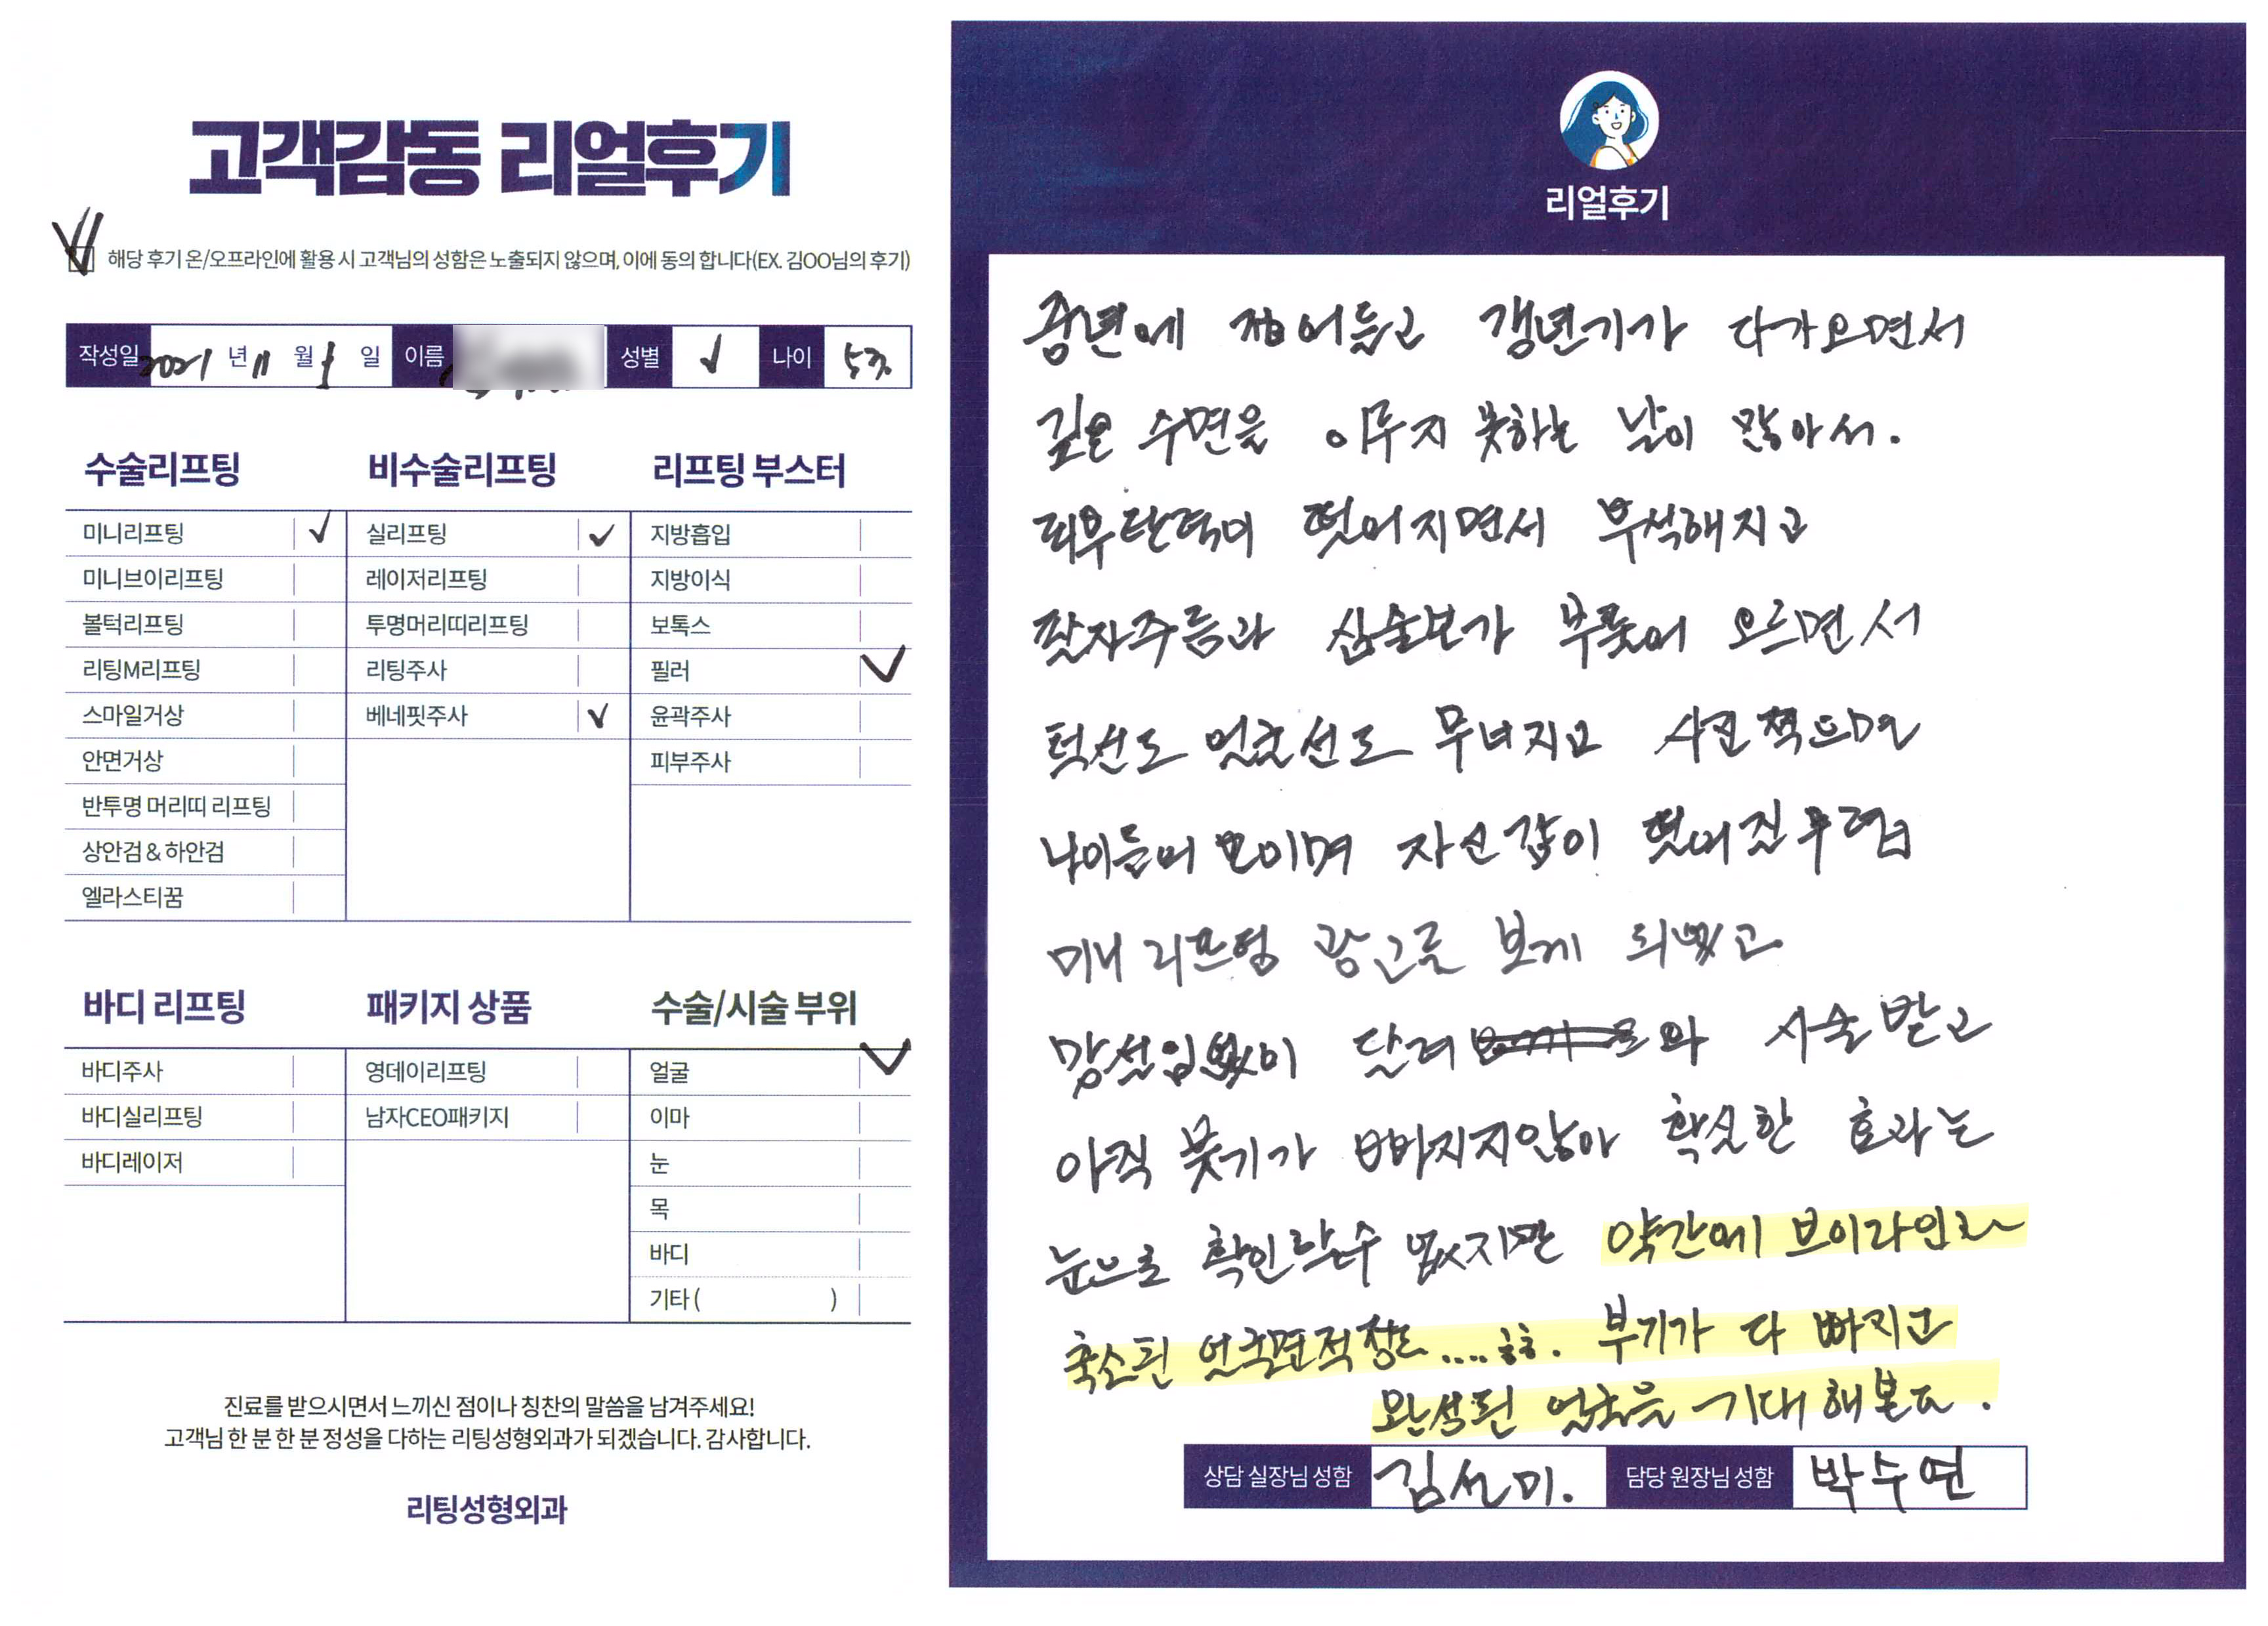 고객감동 리얼후기
해당 후기 온/오프라인에 활용 시 고객님의 성함은 노출되지 않으며, 이에 동의 합니다(EX. 김OO님의 후기)
작성일 2021 년 11 월 일 이름 성별 나이 53
수술리프팅
미니리프팅
미니브이리프팅
볼턱리프팅
리팅M리프팅
스마일거상
안면거상
반투명 머리띠 리프팅
상안검 & 하안검
엘라스티꿈
비수술리프팅
실리프팅
레이저리프팅
투명머리띠리프팅
리팅주사
베네핏주사
리프팅 부스터
지방흡입
지방이식
보톡스
필러
윤곽주사
피부주사
바디 리프팅
바디주사
바디실리프팅
바디레이저
패키지 상품
영데이리프팅
남자CEO패키지
수술/시술 부위
얼굴
이마
눈
목
바디
기타 ( )
진료를 받으시면서 느끼신 점이나 칭찬의 말씀을 남겨주세요!
고객님 한 분 한 분 정성을 다하는 리팅성형외과가 되겠습니다. 감사합니다.
리팅성형외과
리얼후기
중년에 접어들고 갱년기가 다가오면서
깊은 수면을 이루지 못하는 날이 많아서.
피부탄력이 떨어지면서 푸석해지고
팔자주름과 심술보가 부풀어 오르면서
턱선도 얼굴선도 무너지고 사진 찍으면
나이들어 보이며 자신감이 떨어질 무렵
미니 리프팅 광고를 보게 되었고
망설임없이 달려와 시술 받고
아직 붓기가 빠지지않아 확실한 효과는
눈으로 확인할수 없지만 약간에 브이라인과
축소된 얼굴면적정도.... ㅎㅎ. 부기가 다 빠지고
완성된 얼굴을 기대 해본다.
상담 실장님 성함 김선미. 담당 원장님 성함 박수연